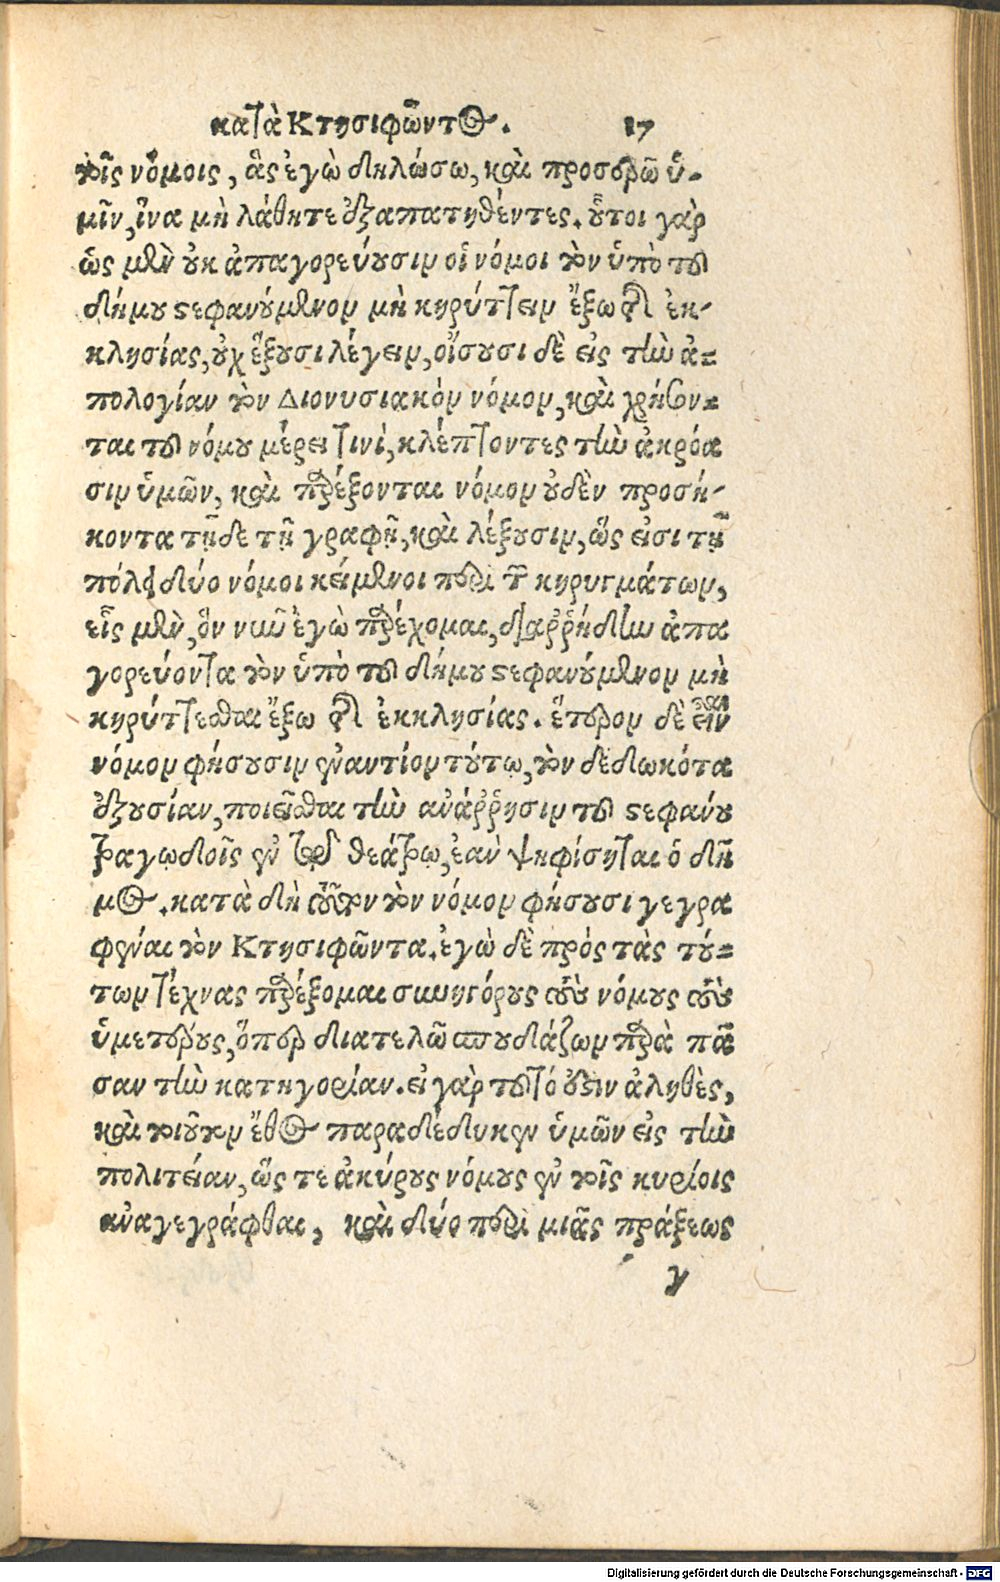 κατὰ Κτησιφῶντος. 17
τοῖς νόμοις, ἃς ἐγὼ δηλώσω, καὶ προερῶ ὑ-
μῖν, ἵνα μὴ λάθητε ἐξαπατηθέντες. οὗτοι γὰρ
ὡς μὲν οὐκ ἀπαγορεύουσιν οἱ νόμοι τὸν ὑπὸ τοῦ
δήμου στεφανούμενον μὴ κηρύττειν ἔξω τῆς ἐκ-
κλησίας, οὐχ ἕξουσι λέγειν, οἴσουσι δὲ εἰς τὴν ἀ-
πολογίαν τὸν Διονυσιακὸν νόμον, καὶ χρήσον-
ται τοῦ νόμου μέρει τινὶ, κλέπτοντες τὴν ἀκρόα
σιν ὑμῶν, καὶ παρέξονται νόμον οὐδὲν προσή-
κοντα τῇδε τῇ γραφῇ, καὶ λέξουσιν, ὥς εἰσι τῇ
πόλει δύο νόμοι κείμενοι περὶ τῶν κηρυγμάτων,
εἷς μὲν, ὃν νῦν ἐγὼ παρέχομαι, διαῤῥήδην ἀπα
γορεύοντα τὸν ὑπὸ τοῦ δήμου στεφανούμενον μὴ
κηρύττεσθαι ἔξω τῆς ἐκκλησίας. ἕτερον δὲ εἶναι
νόμον φήσουσιν ἐναντίον τούτῳ, τὸν δεδωκότα
ἐξουσίαν, ποιεῖσθαι τὴν ἀνάῤῥησιν τοῦ στεφάνου
τραγῳδοῖς ἐν τῷ θεάτρῳ, ἐὰν ψηφίσηται ὁ δῆ
μος. κατὰ δὴ τοῦτον τὸν νόμον φήσουσι γεγρα
φέναι τὸν Κτησιφῶντα. ἐγὼ δὲ πρὸς τὰς τού-
των τέχνας παρέξομαι συνηγόρους τοὺς νόμους τοὺς
ὑμετέρους, ὅπερ διατελῶ σπουδάζων παρὰ πᾶ
σαν τὴν κατηγορίαν. εἰ γὰρ τοῦτό ἐστιν ἀληθὲς,
καὶ τοιοῦτον ἔθος παραδέδυκεν ὑμῶν εἰς τὴν
πολιτείαν, ὥς τε ἀκύρους νόμους ἐν τοῖς κυρίοις
ἀναγεγράφθαι, καὶ δύο περὶ μιᾶς πράξεως
γ
Digitalisierung gefördert durch die Deutsche Forschungsgemeinschaft - DFG